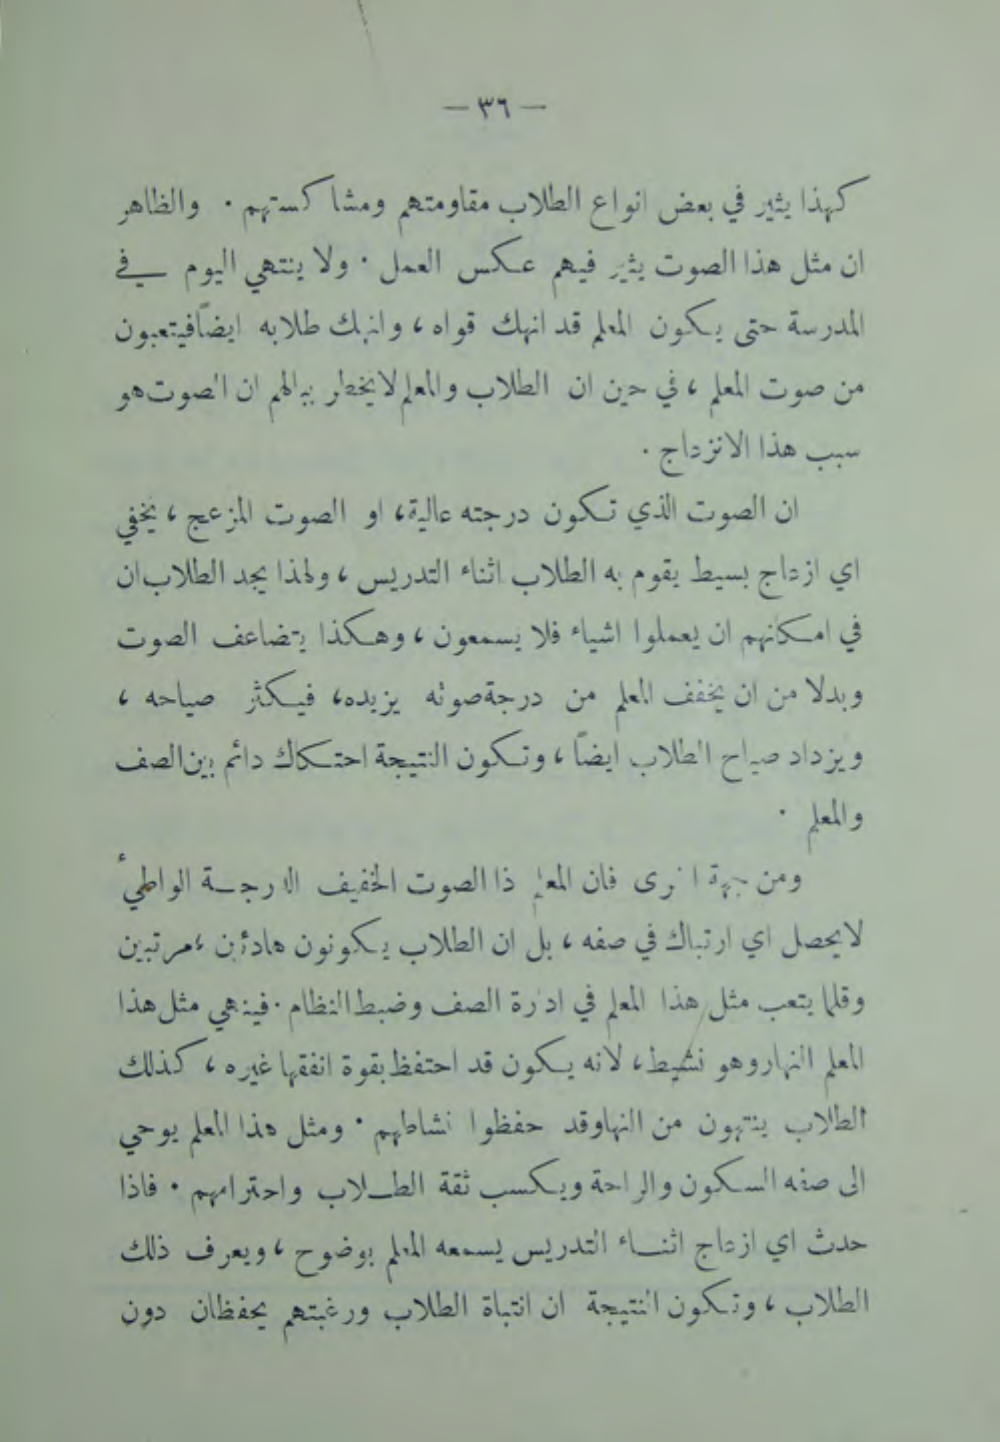 — ٣٦ —
كهذا يثير في بعض انواع الطلاب مقاومتهم ومشاكستهم . والظاهر
ان مثل هذا الصوت يثير فيهم عكس العمل . ولا ينتهي اليوم في
المدرسة حتى يكون المعلم قد انهك قواه ، وانهك طلابه ايضاً فيتعبون
من صوت المعلم ، في حين ان الطلاب والمعلم لايخطر ببالهم ان الصوت هو
سبب هذا الانزعاج .
ان الصوت الذي تكون درجته عالية، او الصوت المزعج ، يخفي
اي ازعاج بسيط يقوم به الطلاب اثناء التدريس ، ولهذا يجد الطلاب ان
في امكانهم ان يعملوا اشياء فلا يسمعون ، وهكذا يتضاعف الصوت
وبدلا من ان يخفف المعلم من درجة صوته يزيده، فيكثر صياحه ،
ويزداد صياح الطلاب ايضاً ، وتكون النتيجة احتكاك دائم بين الصف
والمعلم .
ومن جهة اخرى فان المعلم ذا الصوت الخفيف الدرجة الواطيء
لايحصل اي ارتباك في صفه ، بل ان الطلاب يكونون هادئين ،مرتبين
وقلما يتعب مثل هذا المعلم في ادارة الصف وضبط النظام . فينهي مثل هذا
المعلم النهار وهو نشيط، لانه يكون قد احتفظ بقوة انفقها غيره ، كذلك
الطلاب ينتهون من النهاوقد حفظوا نشاطهم . ومثل هذا المعلم يوحي
الى صفه السكون والراحة ويكسب ثقة الطلاب واحترامهم . فاذا
حدث اي ازعاج اثناء التدريس يسمعه المعلم بوضوح ، ويعرف ذلك
الطلاب ، وتكون النتيجة ان انتباة الطلاب ورغبتهم يحفظان دون